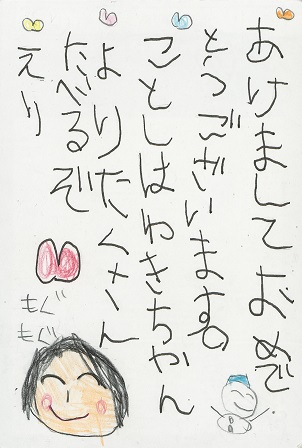 あけましておめで
とうございます。
ことしはゆきちゃん
よりたくさん
たべるぞ
えり
もぐ
もぐ